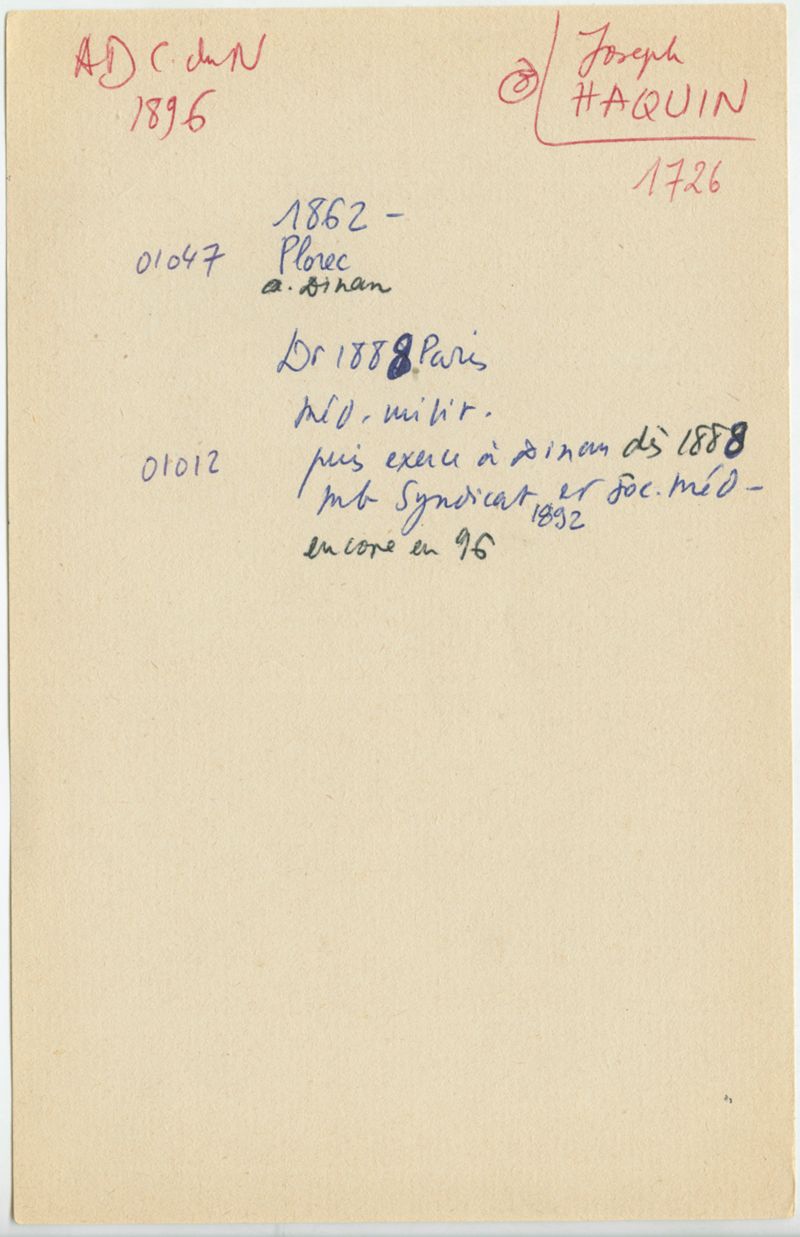 AD C. du N
1896
Joseph
HAQUIN
1726
1862 -
01047 Plorec
a. Dinan
Dr 1888 Paris
méd. milit.
puis exerce à Dinan dès 1888
01012
mb Syndicat et Soc. Méd -
1892
encore en 96